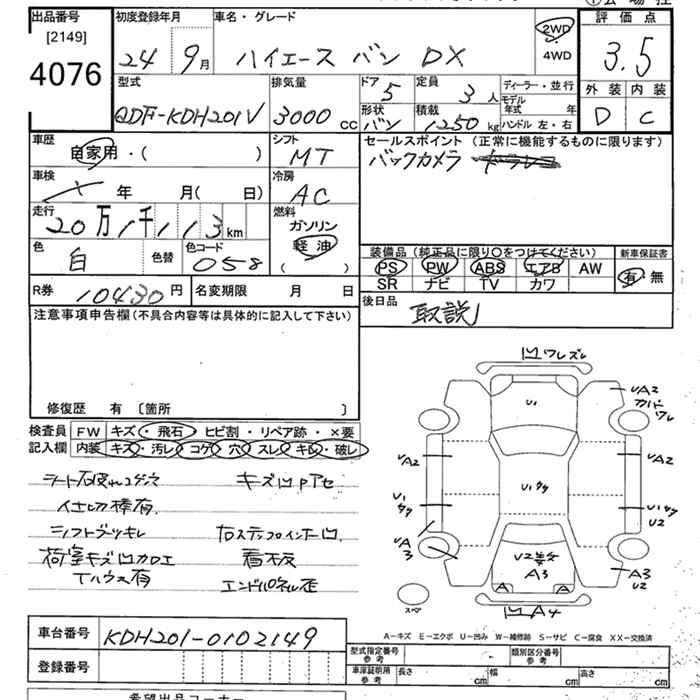 出品番号 初度登録年月 車名・グレード 評価点
[2149]
4076
24 9月 ハイエース バン DX 2WD 3.5
4WD
型式 排気量 ドア 定員 ディーラー・並行 外装 内装
QDF-KDH201V 3000cc 5 3人 モデル年式 年 D C
形状 積載
バン 1250kg ハンドル 左・右
車歴 シフト セールスポイント (正常に機能するものに限ります)
自家用・( ) MT バックカメラ
車検 冷房
年 月( 日) AC
走行 燃料
20万1千113km ガソリン
軽油
色 色替 色コード 装備品(純正品に限り○をつけてください) 新車保証書
白 058 ( ) PS PW ABS エアB AW 有・無
SR ナビ TV カワ
R券 10430円 名変期限 月 日 後日品
取説
注意事項申告欄(不具合内容等は具体的に記入して下さい)
修復歴 有 〔箇所 〕
検査員 FW キズ・飛石・ヒビ割・リペア跡・×要
記入欄 内装 キズ・汚レ・コゲ・穴・スレ・キレ・破レ
キズ凹
仕切棒有
シフトブーツキレ 右ステップインナー凹
荷室キズ凹カロエ 看板
Tハウス有 エンドパネル歪
凹ワレズレ
U1
UA2
カバーワレ
UA2 UA2
U1
U1
U2
UA3
U2
A3
A3
U2
A A
スペ
凹A4
A-キズ E-エクボ U-凹み W-補修跡 S-サビ C-腐食 XX-交換済
車台番号 KDH201-0102149
登録番号
型式指定番号 参考 類別区分番号 参考
車庫証明用 参考 長さ cm 幅 cm 高さ cm
希望出品コーナー